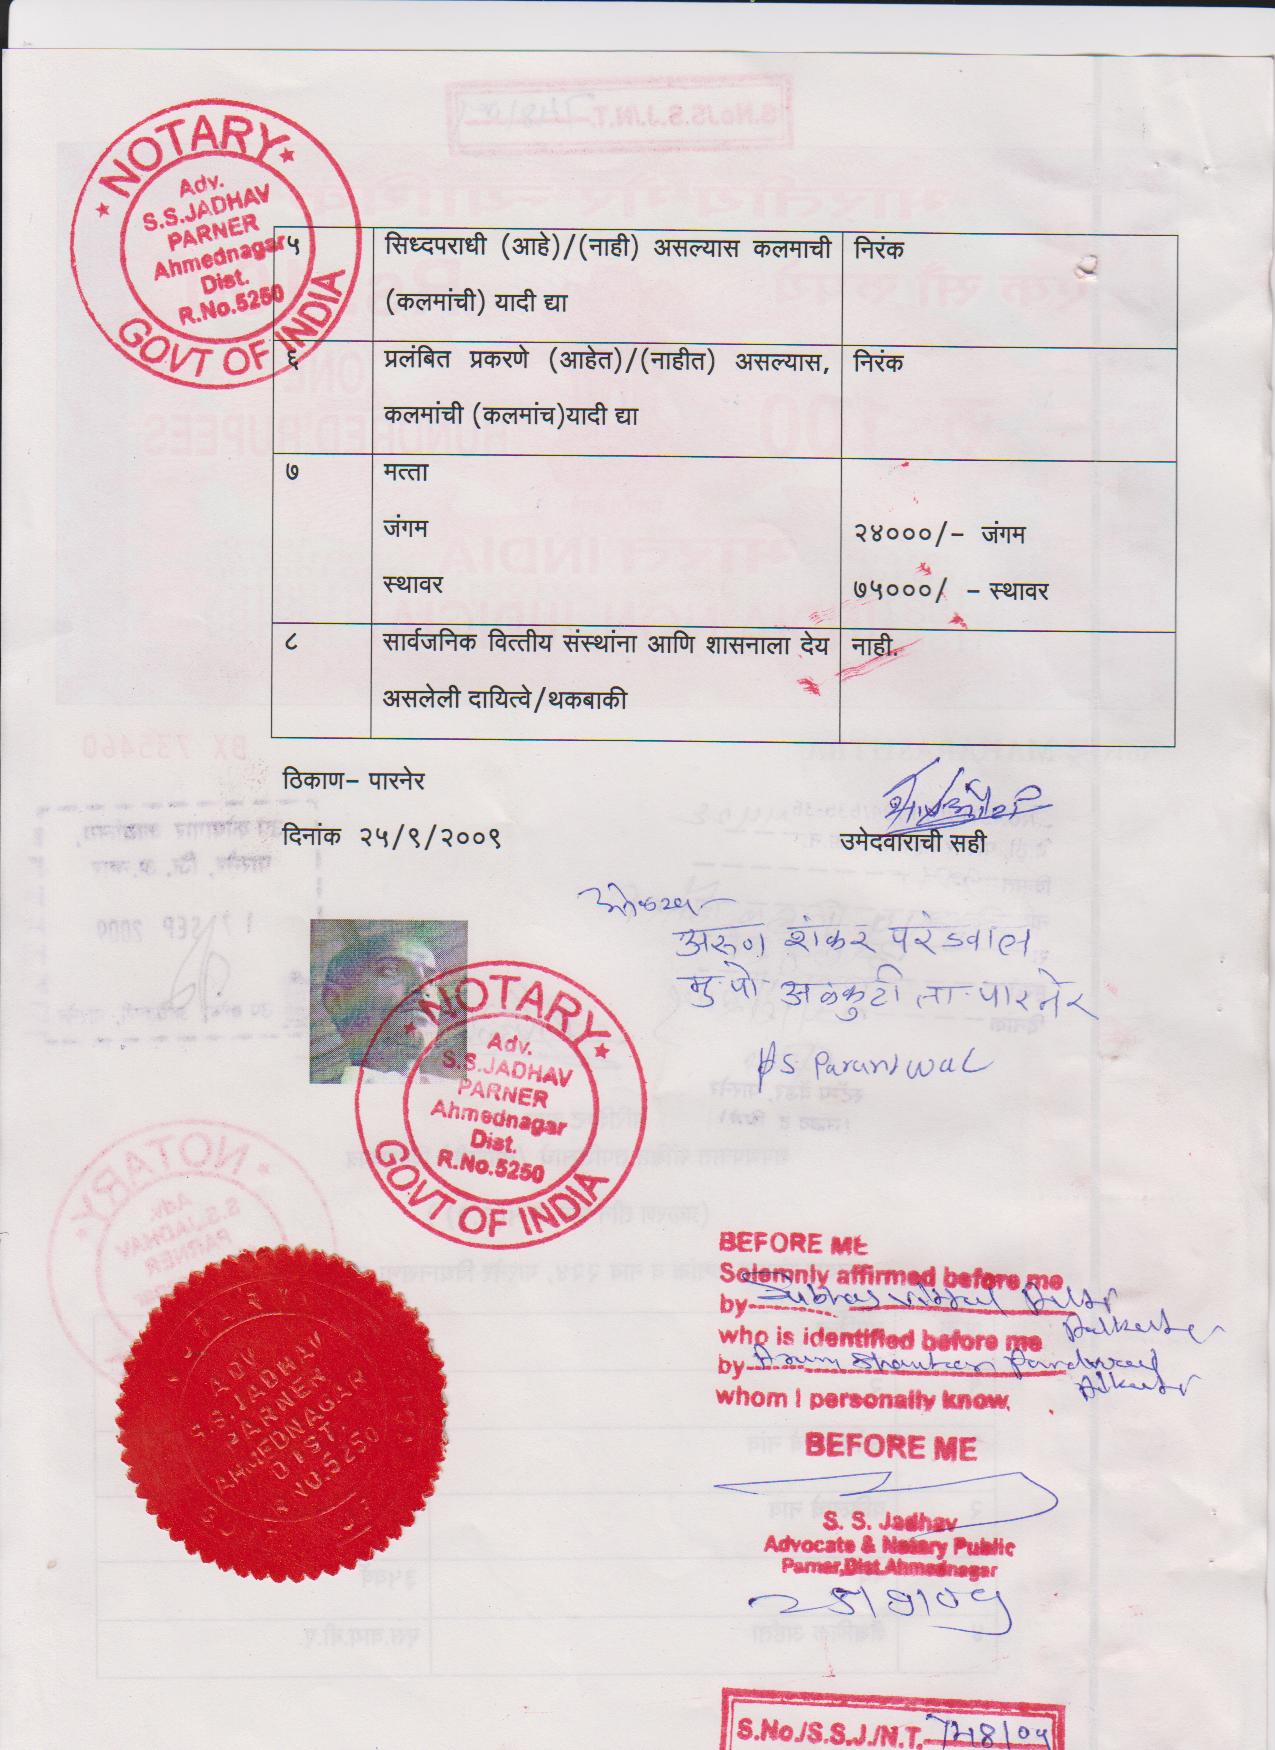 NOTARY
Adv.
S.S.JADHAV
PARNER
Ahmednagar
Dist.
R.No.5250
GOVT OF INDIA
५ सिध्दपराधी (आहे)/(नाही) असल्यास कलमाची निरंक
(कलमांची) यादी द्या
६ प्रलंबित प्रकरणे (आहेत)/(नाहीत) असल्यास, निरंक
कलमांची (कलमांच)यादी द्या
७ मत्ता
जंगम २४०००/- जंगम
स्थावर ७५०००/ -स्थावर
८ सार्वजनिक वित्तीय संस्थांना आणि शासनाला देय नाही.
असलेली दायित्वे/थकबाकी
ठिकाण- पारनेर
दिनांक २५/९/२००९
उमेदवाराची सही
अरुण शंकर परंडवाल
मु.पो. अळकुटी ता-पारनेर
NOTARY
Adv.
S.S.JADHAV
PARNER
Ahmednagar
Dist.
R.No.5250
GOVT OF INDIA
BEFORE ME
Solemnly affirmed before me
by
who is identified before me
by Arun Shankar
whom I personally know.
BEFORE ME
S. S. Jadhav
Advocate & Notary Public
Parner,Dist.Ahmednagar
25/9/09
ADV.
S.S. JADHAV
PARNER
AHMEDNAGAR
DIST.
R.NO.5250
S.No./S.S.J./N.T. 748/09